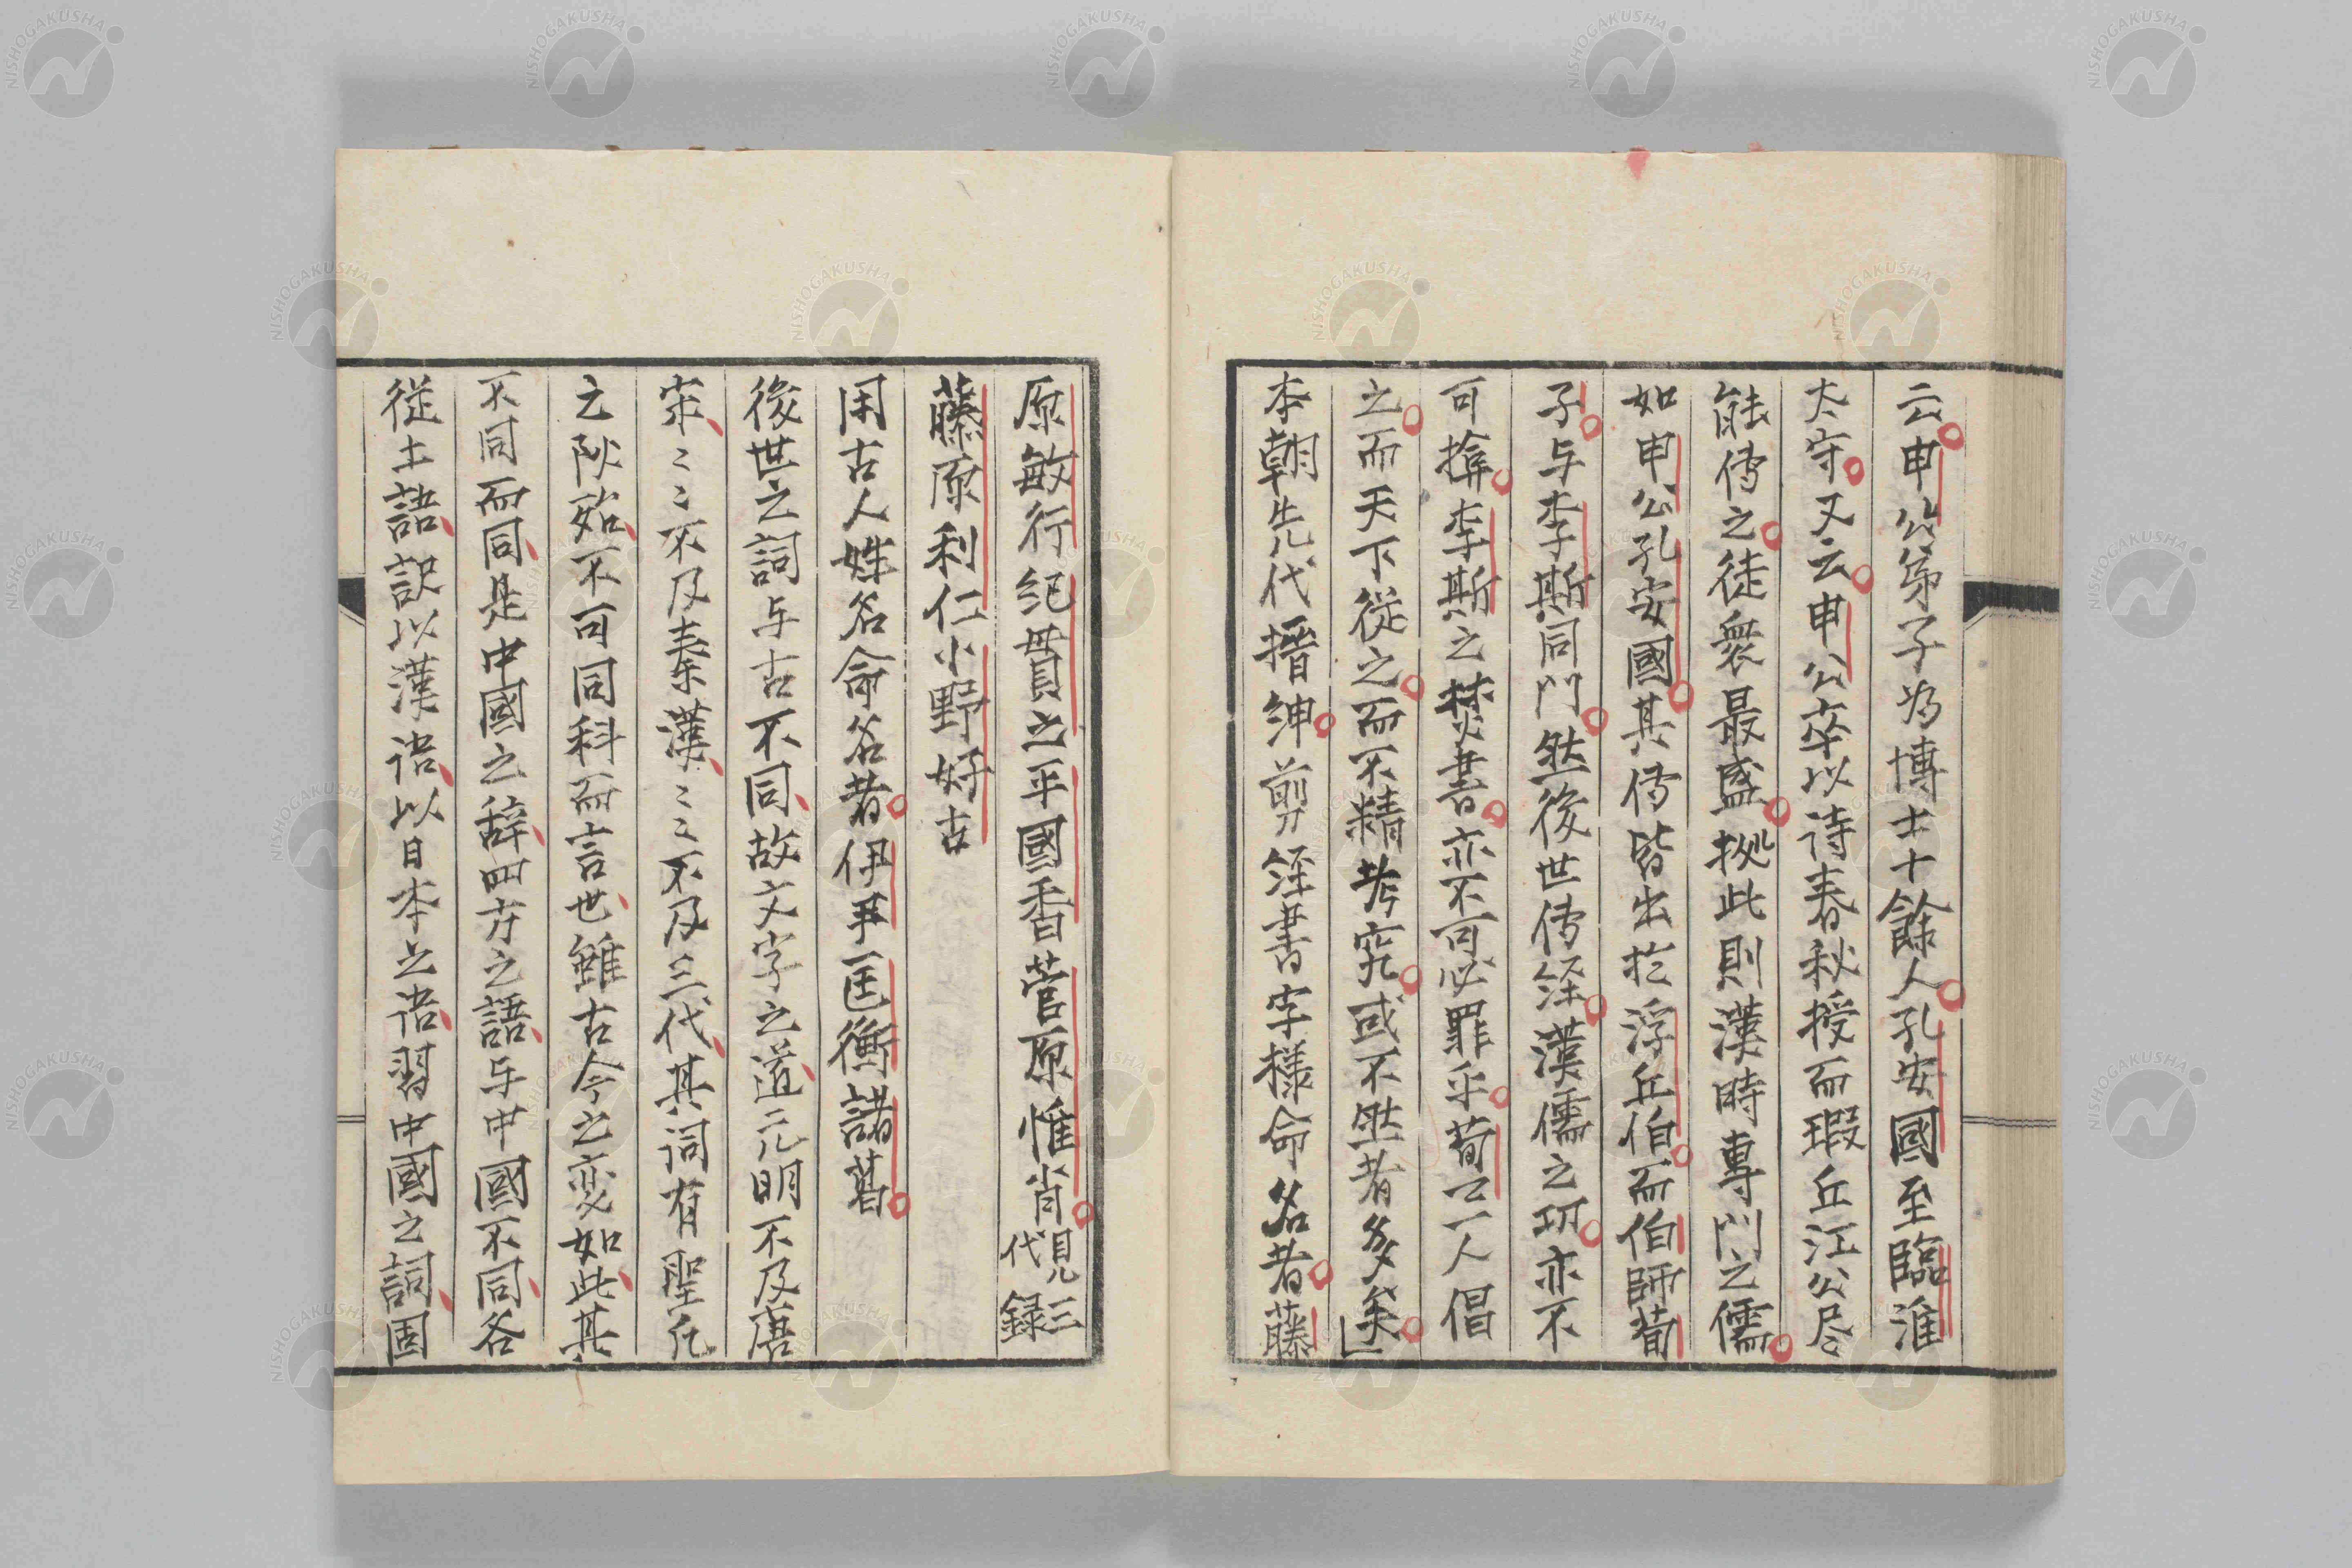 云申公弟子為博士十餘人孔安國至臨淮
太守又云申公卒以诗春秋授而瑕丘江公尽
能傳之徒衆最盛拠此則漢時専門之儒
如申公孔安國其傳皆出於浮丘伯而伯師荀
子与李斯同門然後世傳經漢儒之功亦不
可揜李斯之焚書亦不可必罪乎荀云一人倡
之而天下従之而不精考究或不然者多矣
本朝先代搢紳剪經書字様命名者藤
原敏行紀貫之平國香菅原惟肖見三代録
藤原利仁小野好古
用古人姓名命名者伊尹匡衡諸葛
後世之詞与古不同故文字之道元明不及唐
宋〻〻不及秦漢〻〻不及三代其词有聖凡
之 殆不可同科而言也雖古今之変如此其
不同而同是中國之辞四方之語与中國不同各
従土語訳以漢语以日本之语習中國之詞固
NISHOGAKUSHA